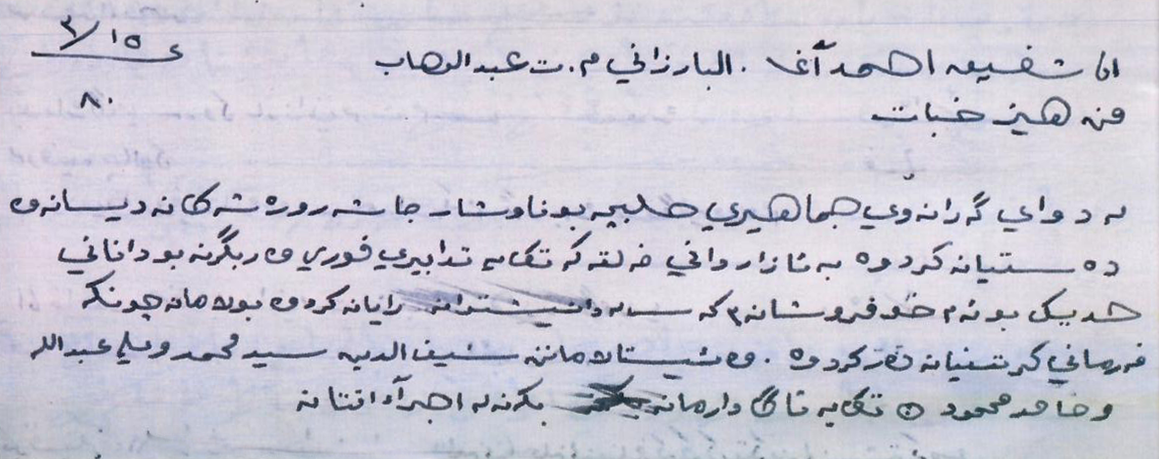 الى شفيع احمد آغا . البارزاني م. ت عبدالوهاب
٤ / ١٥ / ٣
٨٠
من هيز خبات
له دواي گه رانه وي جماهيري حلبجه بو ناو شار جاشه رو ره شه كانه ديسانه و
ده ستيانه كردوه به ئازار داني خه لته كه تكايه تدابيري فوري وه ربگرنه بو داناني
حديك بو ئه م خو فروشانه كه رايانه كردوه بولامانه چونكه
فه رماني گرتنيانه ده ركردوه . وه ئيستا لامانه سيف الدين سيد محمد و علي عبدالله
و حامد محمود تكايه ئاگا دارمانه بكه نه له اجرآ اتتانه